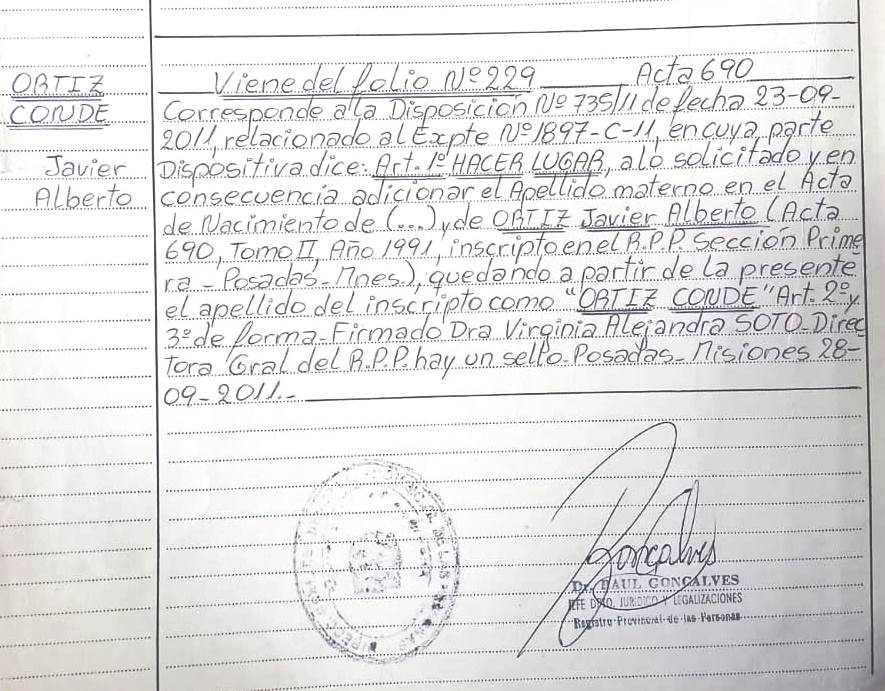 ORTIZ
CONDE
Javier
Alberto
Viene del folio Nº 229 Acta 690
Corresponde a la Disposición Nº 735/11 de fecha 23-09-
2011, relacionado al Expte Nº 1897-C-11, en cuya parte
Dispositiva dice: Art. 1º HACER LUGAR, a lo solicitado y en
consecuencia adicionar el Apellido materno en el Acta
de Nacimiento de (...) y de ORTIZ Javier Alberto (Acta
690, Tomo II, Año 1991, inscripto en el R.P.P. Sección Prime
ra - Posadas - Mnes.), quedando a partir de la presente
el apellido del inscripto como "ORTIZ CONDE" Art. 2º y
3º de forma - Firmado Dra Virginia Alejandra SOTO - Direc
tora Gral del R.P.P. hay un sello - Posadas - Misiones 28-
09-2011.-
Gonçalves
Dr. RAUL GONÇALVES
JEFE DPTO. JURIDICO Y LEGALIZACIONES
Registro Provincial de las Personas